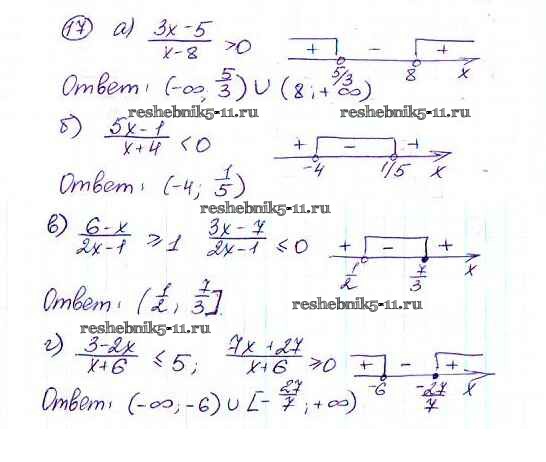 17 а) (3x-5)/(x-8) > 0 + - + 5/3 8 x
Ответ: (-∞; 5/3) ∪ (8; +∞)
reshebnik5-11.ru reshebnik5-11.ru
б) (5x-1)/(x+4) < 0 + - + -4 1/5 x
Ответ: (-4; 1/5)
reshebnik5-11.ru
в) (6-x)/(2x-1) ⩾ 1 (3x-7)/(2x-1) ⩽ 0 + - + 1/2 7/3 x
Ответ: (1/2; 7/3]
reshebnik5-11.ru
reshebnik5-11.ru
г) (3-2x)/(x+6) ⩽ 5; (7x+27)/(x+6) ⩾ 0 + - + -6 -27/7 x
Ответ: (-∞; -6) ∪ [-27/7; +∞)